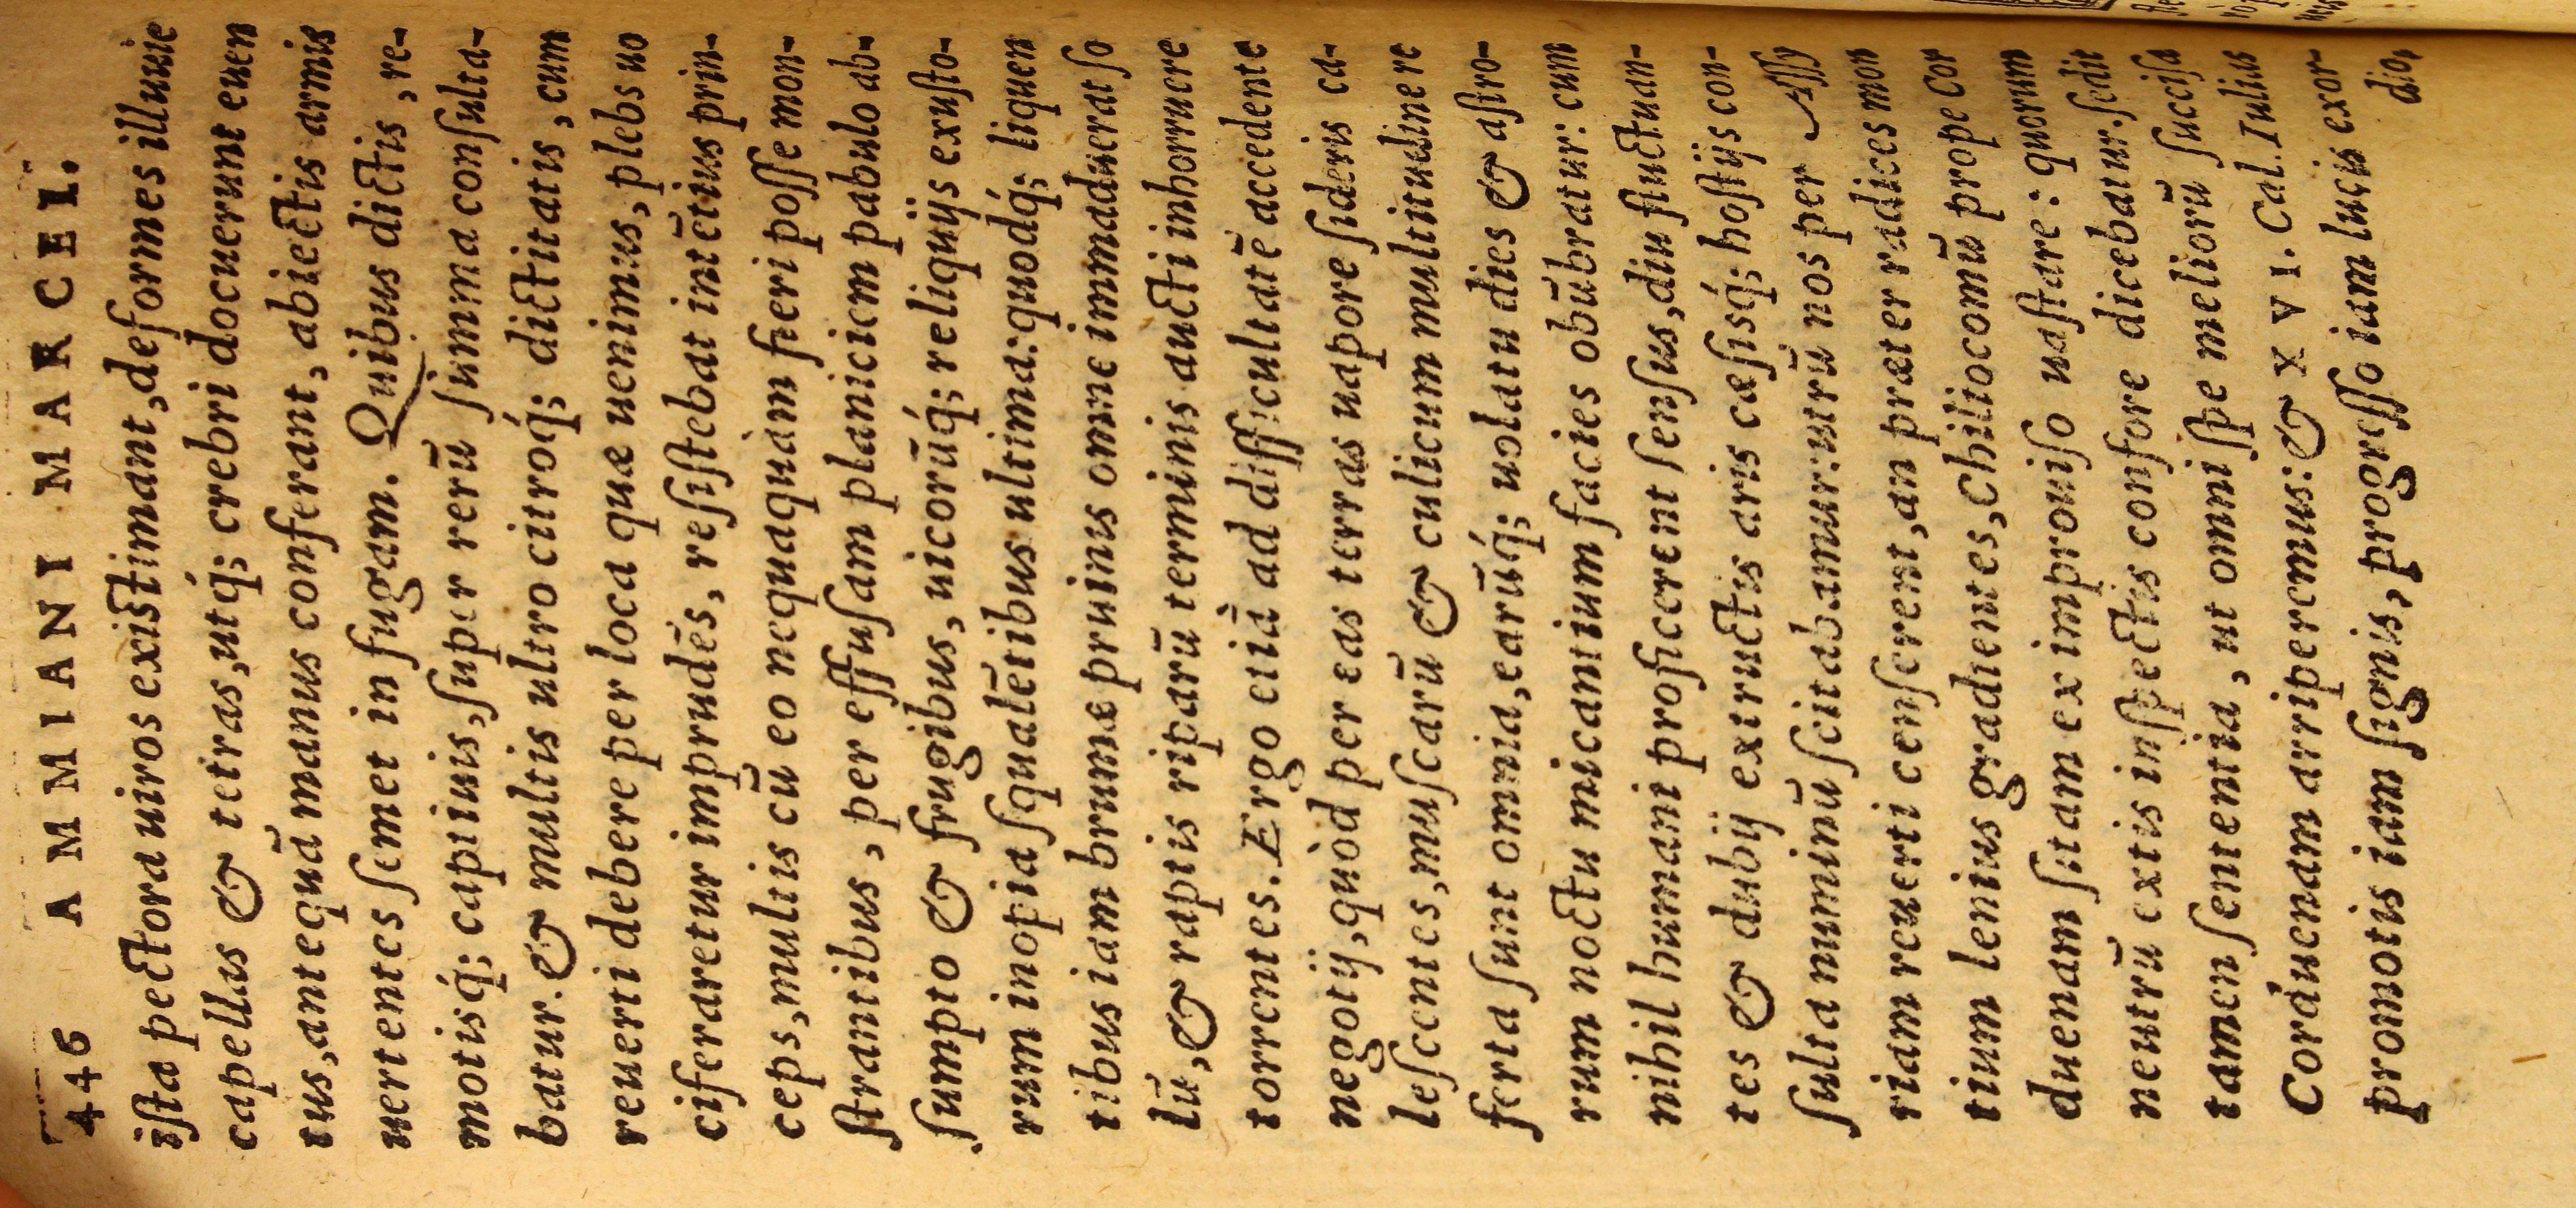 446 AMMIANI MARCEI.
iſta pectora uiros exiſtimant, deformes illuuie
capellas & tetras, utq́; crebri docuerunt euen
tus, antequā manus conferant, abiectis armis
uertentes ſemet in fugam. Quibus dictis, re-
motisq́; captiuis, ſuper rerū ſumma conſulta-
batur. & multis ultro citroq́; dictitatis, cum
reuerti debere per loca quæ uenimus, plebs uo
ciferaretur imprudēs, reſiſtebat intētius prin-
ceps, multis cū eo nequaquàm fieri poſſe mon-
ſtrantibus, per effuſam planiciem pabulo ab-
ſumpto & frugibus, uicorūq́; reliquijs exuſto-
rum inopia ſqualētibus ultima: quodq́; liquen
tibus iam brumæ pruinis omne immaduerat ſo
lū, & raptis riparū terminis aucti inhorruere
torrentes. Ergo etiā ad difficultatē accedente
negotij, quòd per eas terras uapore ſideris ca-
leſcentes, muſcarū & culicum multitudine re
ferta ſunt omnia, earūq́; uolatu dies & aſtro-
rum noctu micantium facies obūbratur: cum
nihil humani proficerent ſenſus, diu fluctuan-
tes & dubij extructis aris cæſisq́; hoſtijs con-
ſulta numinū ſcitabamur: utrū nos per Aſſy
riam reuerti cenſerent, an præter radices mon
tium lenius gradientes, Chiliocomū prope Cor
duenam ſitam ex improuiſo uaſtare: quorum
neutrū extis inſpectis confore dicebatur. ſedit
tamen ſententia, ut omni ſpe meliorū ſucciſa
Corduenam arriperemus: & XVI. Cal. Iulius
promotis iam ſignis, progreſſo iam lucis exor-
dio,